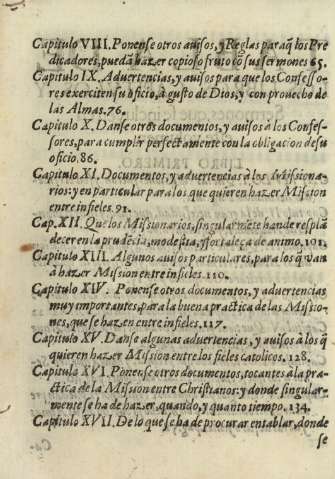 Capitulo VIII. Ponense otros auisos, y Reglas para q̃ los Pre
dicadores, puedã hazer copioso fruto cõ sus sermones 65.
Capitulo IX. Aduertencias, y auisos para que los Confesso-
res exerciten su oficio, à gusto de Dios, y con prouecho de
las Almas. 76.
Capitulo X. Danse otros documentos, y auisos à los Confes-
sores, para cumplir perfectamente con la obligacion de su
oficio. 86.
Capitulo XI. Documentos, y aduertencias à los Missiona-
rios: y en particular para los que quieren hazer Mission
entre infieles. 91.
Cap. XII. Que los Missionarios, singularmẽte han de resplã
decer en la prudẽcia, modestia, y fortaleça de animo. 101.
Capitulo XIII. Algunos auisos particulares, para los q̃ van
à hazer Mission entre infieles. 110.
Capitulo XIV. Ponense otros documentos, y aduertencias
muy importantes, para la buena practica de las Missio-
nes, que se hazen entre infieles. 117.
Capitulo XV. Danse algunas aduertencias, y auisos à los q̃
quieren hazer Mission entre los fieles catolicos. 128.
Capitulo XVI. Ponense otros documentos, tocantes à la pra-
ctica de la Mission entre Christianos: y donde singular-
mente se ha de hazer, quando, y quanto tiempo. 134.
Capitulo XVII. De lo que se ha de procurar entablar, donde
se